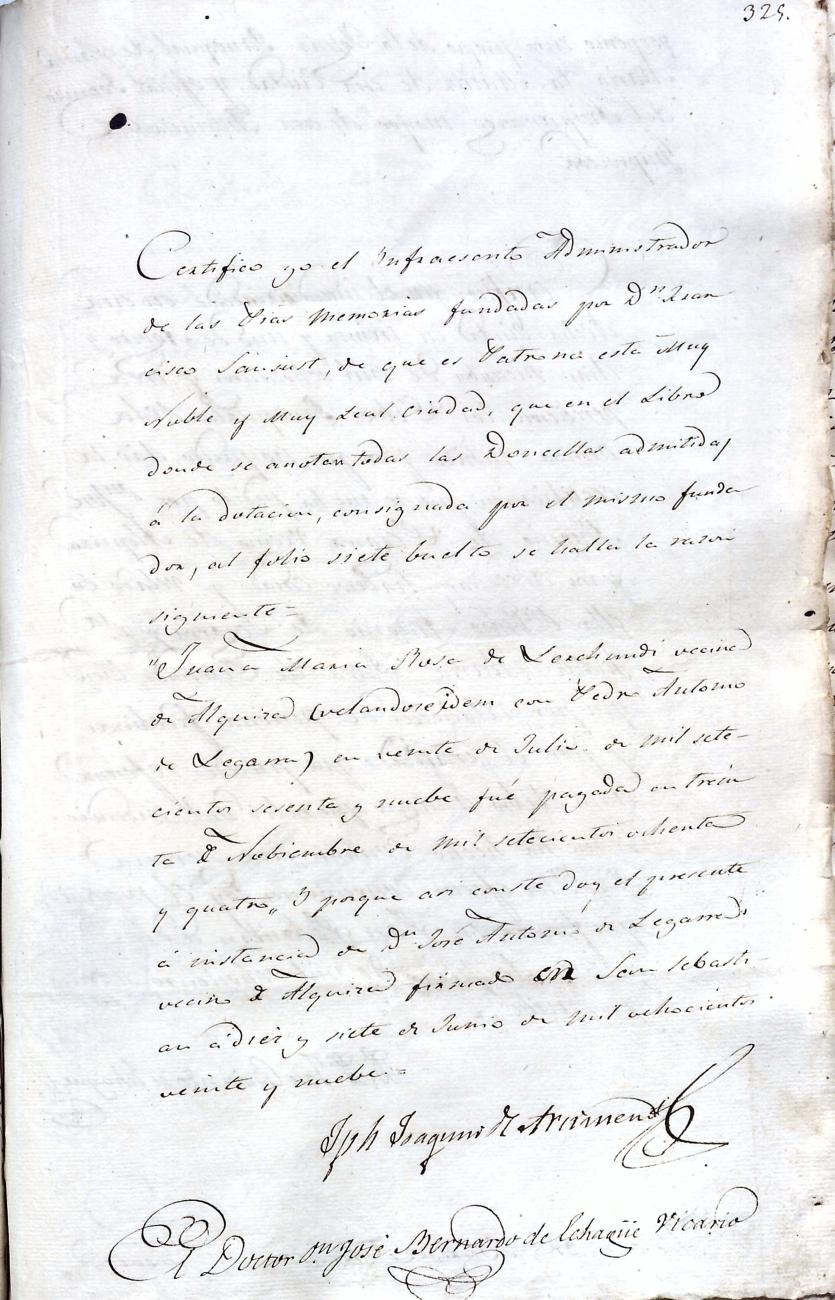 325.
Certifico yo el Infraescrito Administrador
de las Pias Memorias fundadas por Dⁿ Fran
cisco Sansust, de que es Patrona esta Muy
Noble y Muy Leal Ciudad, que en el Libro
donde se anotan todas las Doncellas admitidas
á la dotacion, consignada por el mismo funda
dor, al folio siete buelto se halla la razon
siguiente=
"Juana Maria Rosa de Lerchundi vecina
de Alquiza (velandose idem con Pedro Antonio
de Legarra) en veinte de Julio de mil sete-
cientos sesenta y nuebe fué pagada en trein
ta de Nobiembre de mil setecientos ochenta
y quatro,, Y porque asi conste doy el presente
á instancia de Dⁿ José Antonio de Legarra
vecino de Alquiza firmado en San Sebasti-
an á diez y siete de Junio de mil ochocientos
veinte y nuebe.=
Jph Joaquin de Arizmendi
El Doctor Dⁿ José Bernardo de Echagüe Vicario